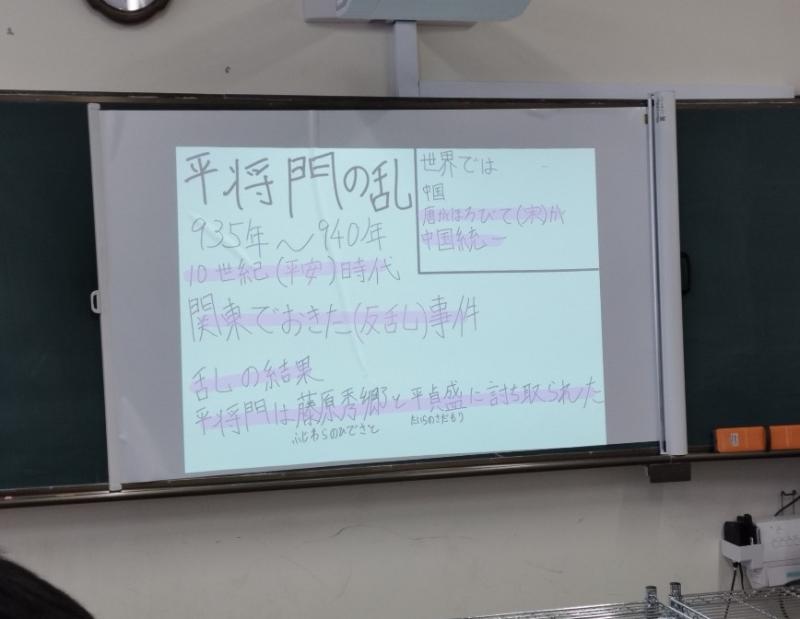 平将門の乱
935年〜940年
10世紀(平安)時代
関東でおきた(反乱)事件
乱の結果
平将門は藤原秀郷と平貞盛に討ち取られた
ふじわらのひでさと たいらのさだもり
世界では
中国
唐がほろびて(宋)が
中国統一